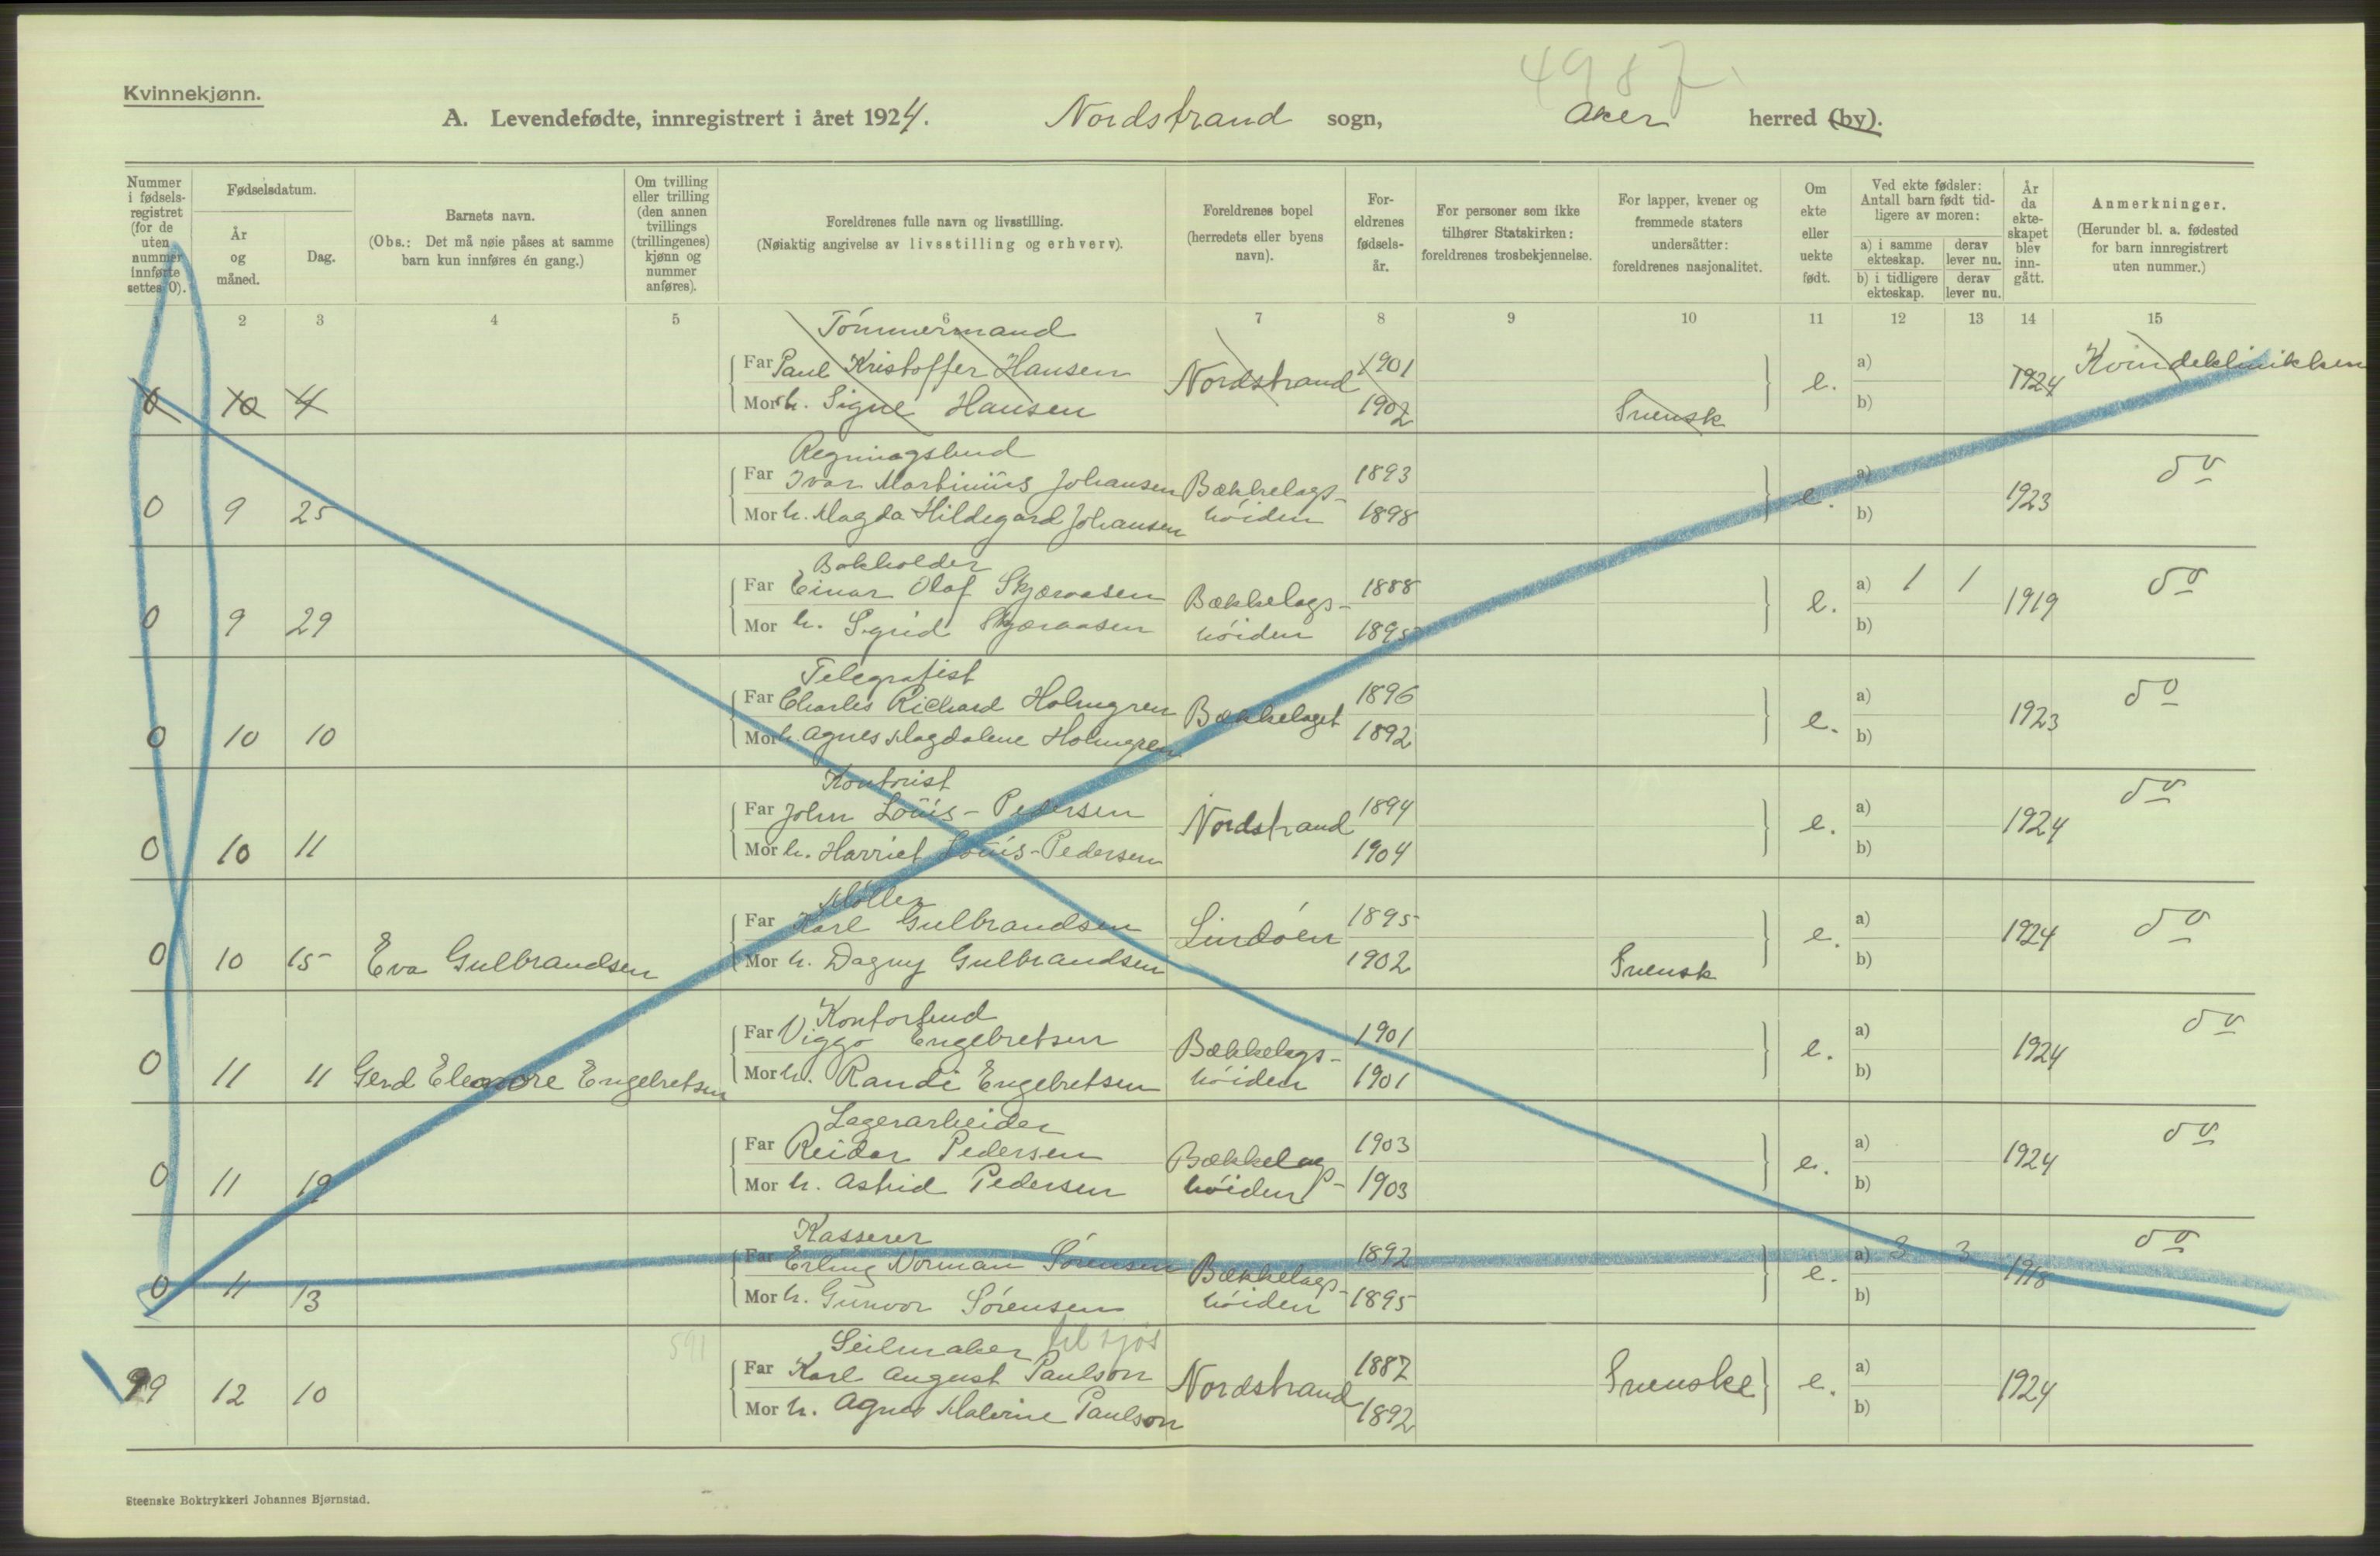 4987
Kvinnekjønn.
A. Levendefødte, innregistrert i året 1924. Nordstrand sogn, Aker herred (by).
Nummer i fødsels-registret (for de uten nummer innførte settes 0).
Fødselsdatum.
År og måned.
Dag.
Barnets navn.
(Obs.: Det må nøie påses at samme barn kun innføres én gang.)
Om tvilling eller trilling (den annen tvillings (trillingenes) kjønn og nummer anføres).
Foreldrenes fulle navn og livsstilling.
(Nøiaktig angivelse av livsstilling og erhverv).
Foreldrenes bopel (herredets eller byens navn).
For-eldrenes fødsels-år.
For personer som ikke tilhører Statskirken: foreldrenes trosbekjennelse.
For lapper, kvener og fremmede staters undersåtter: foreldrenes nasjonalitet.
Om ekte eller uekte født.
Ved ekte fødsler: Antall barn født tid-ligere av moren:
a) i samme ekteskap.
derav lever nu.
b) i tidligere ekteskap.
derav lever nu.
År da ekte-skapet blev inn-gått.
Anmerkninger.
(Herunder bl. a. fødested for barn innregistrert uten nummer.)
2 3 4 5 6 7 8 9 10 11 12 13 14 15
Tömmermand
Far Paul Kristoffer Hansen 1901 a) Kvindeklinikken
0 10 4 Nordstrand e. 1924
Mor h. Signe Hansen 1902 Svensk b)
Regningsbud
Far Ivar Martinius Johansen Bækkelags- 1893 a) do
0 9 25 e. 1923
Mor h. Magda Hildegard Johansen höiden 1898 b)
Bokholder
Far Einar Olaf Skjæraasen Bækkelags- 1888 a) 1 1 do
0 9 29 e. 1919
Mor h. Sigrid Skjæraasen höiden 1895 b)
Telegrafist
Far Charles Richard Holmgren 1896 a) do
0 10 10 Bækkelaget e. 1923
Mor h. Agnes Magdalene Holmgren 1892 b)
Kontorist
Far John Louis-Pedersen 1894 a) do
0 10 11 Nordstrand e. 1924
Mor h. Harriet Louis-Pedersen 1904 b)
Möller
Far Karl Gulbrandsen 1895 a) do
0 10 15 Eva Gulbrandsen Lindöen e. 1924
Mor h. Dagny Gulbrandsen 1902 Svensk b)
Kontorbud
Far Viggo Engebretsen Bækkelags- 1901 a) do
0 11 11 Gerd Eleonore Engebretsen e. 1924
Mor h. Randi Engebretsen höiden 1901 b)
Lagerarbeider
Far Reidar Pedersen Bækkelags- 1903 a) do
0 11 19 e. 1924
Mor h. Astrid Pedersen höiden 1903 b)
Kasserer
Far Erling Norman Sörensen Bækkelags- 1892 a) 3 3 do
0 11 13 e. 1918
Mor h. Gunvor Sörensen höiden 1895 b)
591 Seilmaker til sjös
Far Karl August Paulson 1887 a)
99 12 10 Nordstrand Svenske e. 1924
Mor h. Agnes Malvine Paulson 1892 b)
Steenske Boktrykkeri Johannes Bjørnstad.